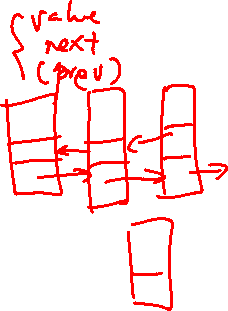 value
next
(prev)